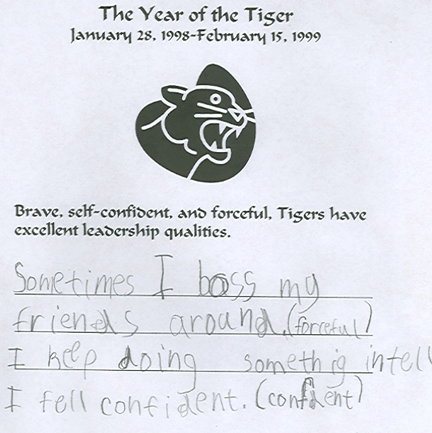 The Year of the Tiger
January 28, 1998-February 15, 1999
Brave, self-confident, and forceful, Tigers have
excellent leadership qualities.
Sometimes I boss my
friends around.(forceful)
I keep doing somethig intell
I fell confident. (confident)